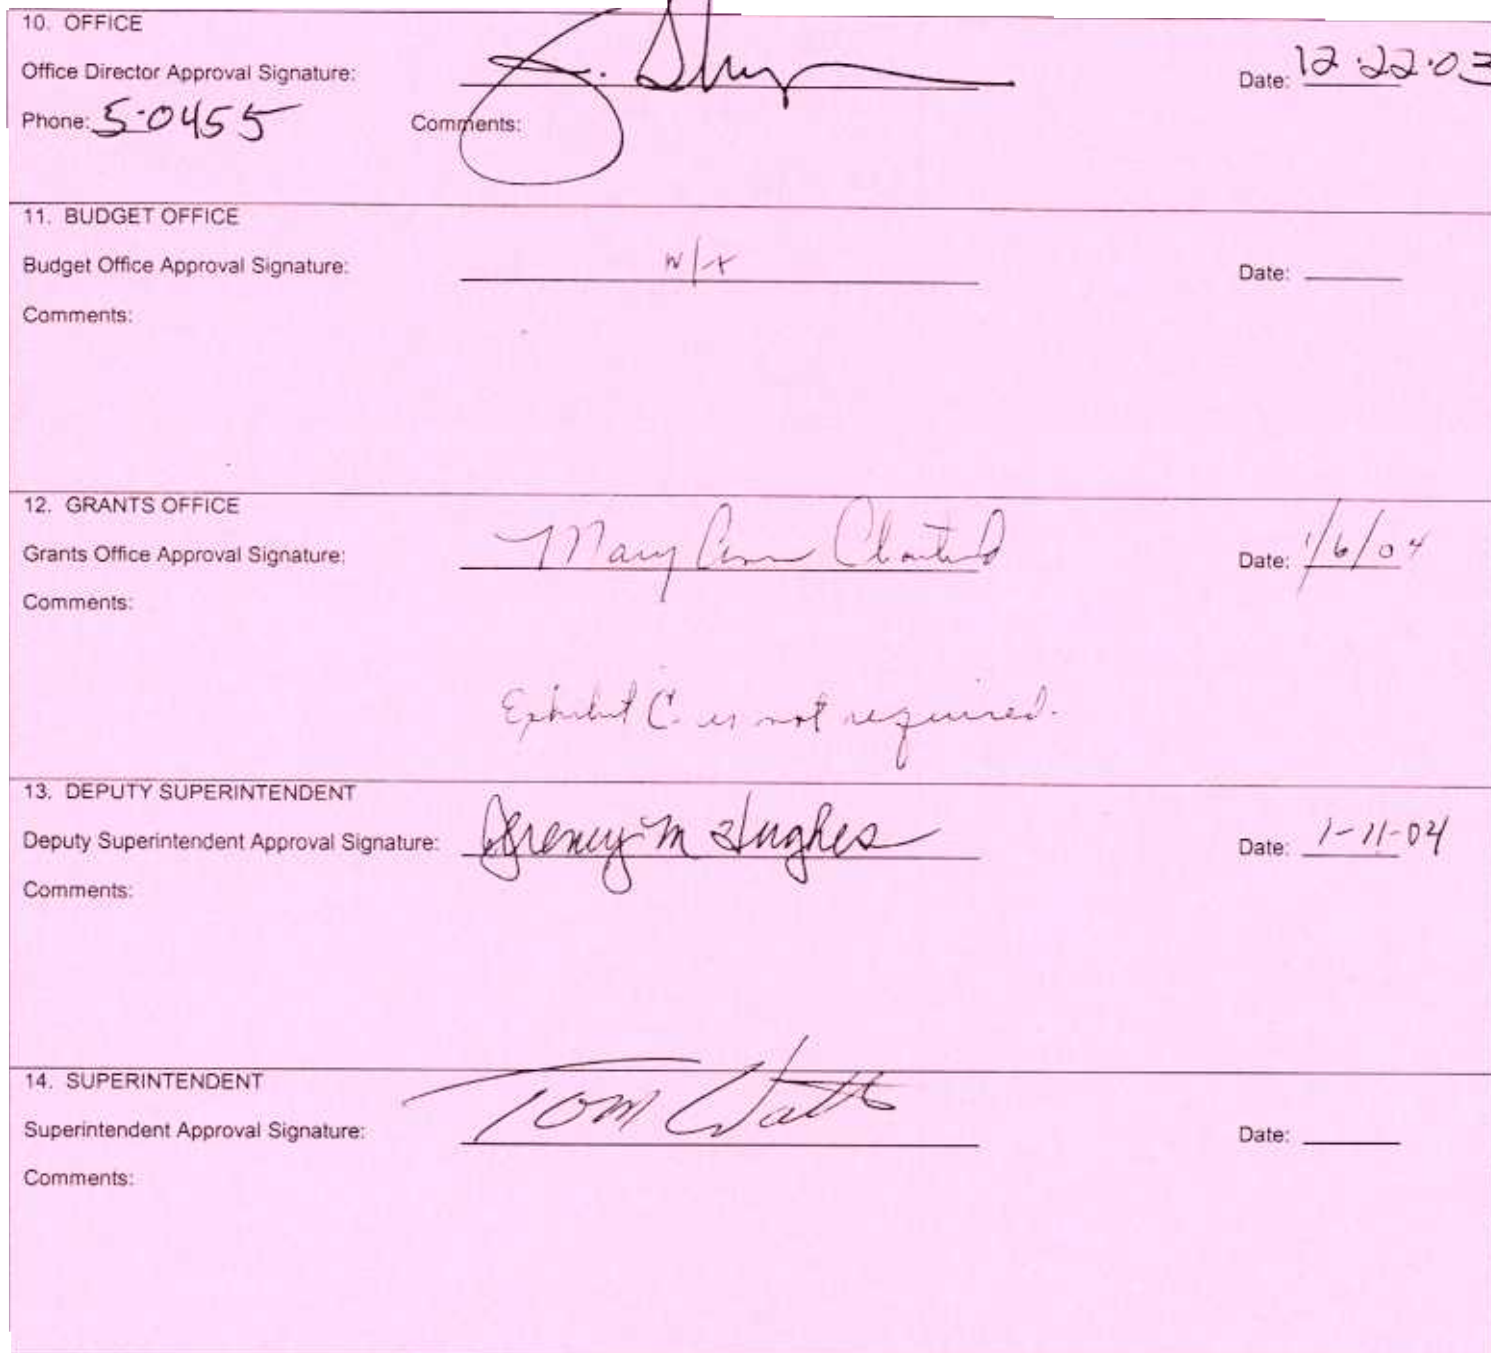 10. OFFICE
Office Director Approval Signature: Date: 12.22.03
Phone: 5-0455 Comments:
11. BUDGET OFFICE
Budget Office Approval Signature: N/A Date:
Comments:
12. GRANTS OFFICE
Grants Office Approval Signature: Mary Ann Date: 1/6/04
Comments:
Exhibit C is not required.
13. DEPUTY SUPERINTENDENT
Deputy Superintendent Approval Signature: Jeremy M Hughes Date: 1-11-04
Comments:
14. SUPERINTENDENT
Superintendent Approval Signature: Tom Date:
Comments: